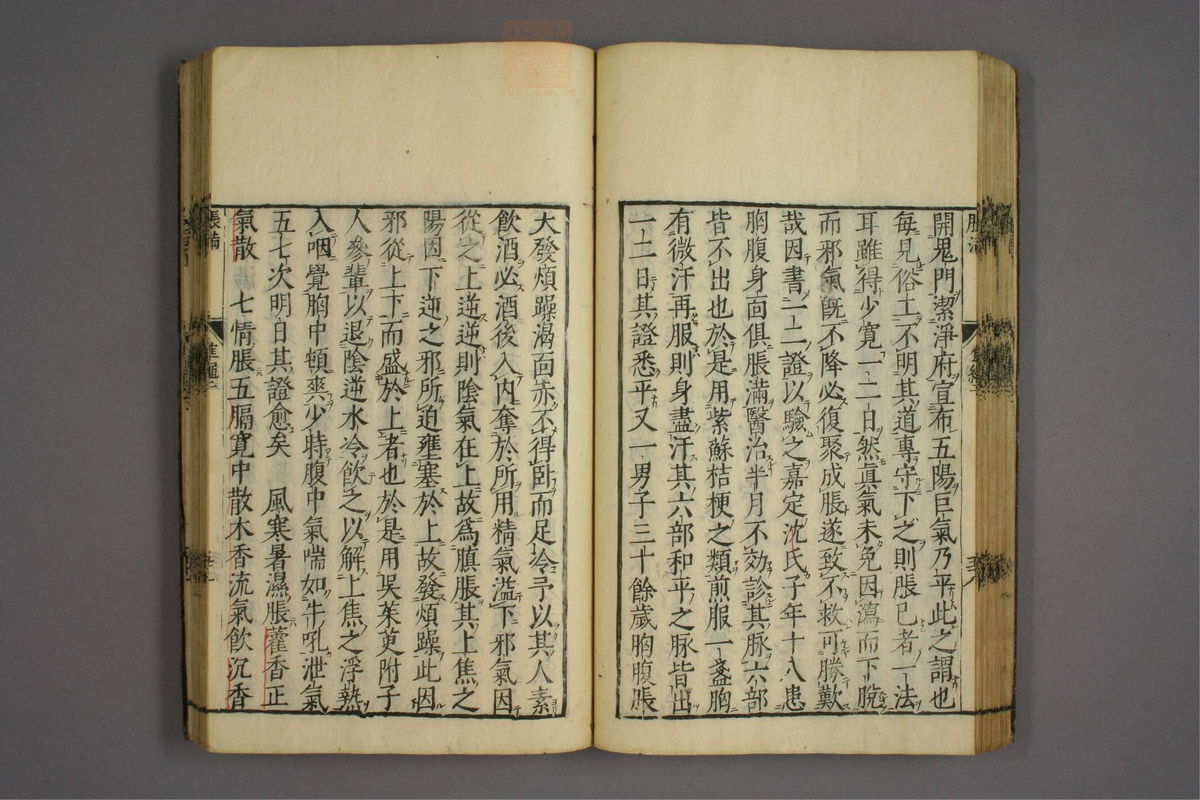 開鬼門潔淨府宣布五陽巨氣乃平此之謂也
每見俗工不明其道專守下之則脹已者一法
耳雖得少寬一二日然眞氣未免因瀉而下脫
而邪氣旣不降必復聚成脹遂致不救可勝歎
哉因書一二證以驗之嘉定沈氏子年十八患
胸腹身面俱脹滿醫治半月不効診其脉六部
皆不出也於是用紫蘇桔梗之類煎服一盞胸
有微汗再服則身盡汗其六部和平之脉皆出
一二日其證悉平又一男子三十餘歲胸腹脹
大發煩躁渴面赤不得卧而足冷予以其人素
飲酒必酒後入內奪於所用精氣溢下邪氣因
從之上逆逆則陰氣在上故爲䐜脹其上焦之
陽因下逆之邪所迫壅塞於上故發煩躁此因
邪從上下而盛於上者也於是用吳茱萸附子
人參輩以退陰逆水冷飲之以解上焦之浮熱
入咽覺胸中頓爽少時腹中氣喘如牛吼泄氣
五七次明日其證愈矣 風寒暑濕脹藿香正
氣散 七情脹五膈寬中散木香流氣飲沉香
脹滿